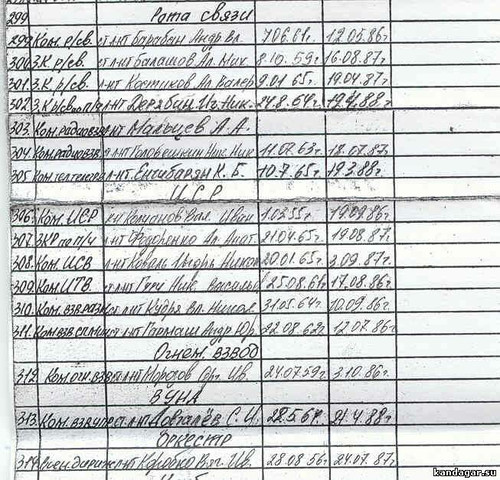 299 Рота связи
299 Ком. р/св. ст.л-нт Барабан Андр Вл. 7.06.61г. 12.05.86г.
300 З.К р/св. ст.л-нт Балашов Ал. Мих 8.10.59г. 16.08.87г.
301. З.К. р/св. л-нт Костиков Ал. Валер 9.01.65 19.04.87г.
302. З.К р/св по п/ч л-нт Дерябин Иг. Ник. 24.8.64г. 19.4.88г.
303. Ком. радиовзв л-нт Мальцев А. А.
304. Ком. радиовзв л-нт Головешкин Ник. Ник. 11.07.63г. 18.07.87г.
305 л-нт Енгибарян К. Б. 10.7.65г. 19.3.88г.
ИСР
306. Ком. ИСР Вал. Иван 1.03.55г. 19.09.86г.
307. ЗКР по п/ч л-нт Федоренко Ал. Анат. 21.04.65г. 19.08.87г.
308. Ком. ИСВ л-нт Коваль Игорь Никол 20.01.65г. 3.09.87г.
309. Ком. ИТВ Ник. Василь 25.08.61г. 17.08.86г.
310. Ком. взв. разм. ст.л-нт Вл. Никол 31.05.64г. 10.09.86г.
311. Ком. взв ст.л-нт Гармаш Андр Юр. 22.08.62г. 12.07.86г.
Огнем. взвод
312. Ком. огн. взв. ст.л-нт Морозов Ив. 24.07.59г. 3.10.86г.
ВУНА
313. Ком. взв. упр. ст.л-нт Довгалёв С. И. 22.5.61г. 21.4.88г.
Оркестр
314. Воен. дирижер л-нт Коробко Ив. 28.08.56г. 24.07.87г.
kandagar.su